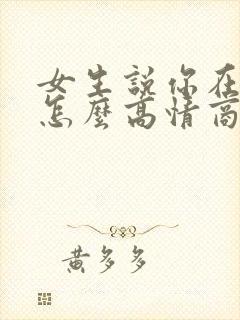 女生說你在
怎麼高情商
黃多多